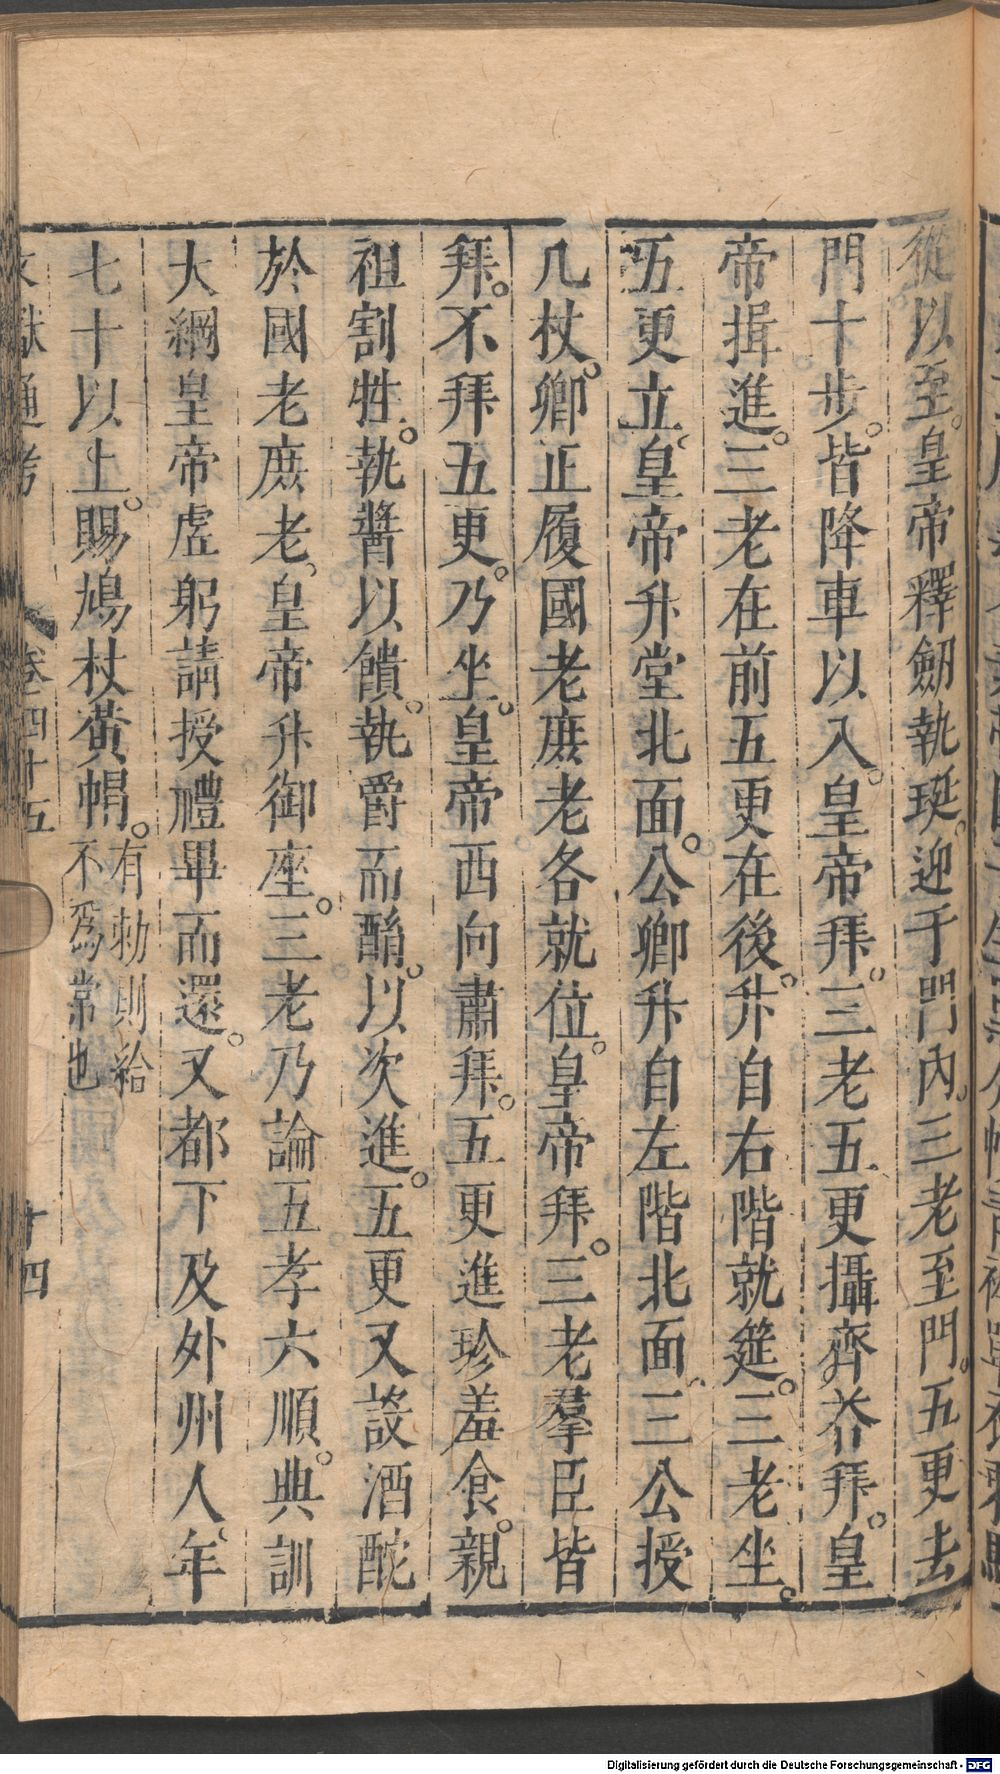 從以至。皇帝釋劒執珽。迎于門內。三老至門。五更去
門十步。皆降車以入。皇帝拜。三老五更攝齊荅拜。皇
帝揖進。三老在前五更在後。升自右階就筵。三老坐。
五更立。皇帝升堂北面。公卿升自左階北面。三公授
几杖。卿正履國老庶老各就位。皇帝拜。三老羣臣皆
拜。不拜五更。乃坐。皇帝西向肅拜。五更進珍羞食。親
祖割牲。執醬以饋。執爵而酳。以次進。五更又設酒酏
於國老庶老。皇帝升御座。三老乃論五孝六順。典訓
大綱皇帝虛躬請授禮畢而還。又都下及外州人。年
七十以上。賜鳩杖黃帽。有勅則給
不爲常也
文獻通考 卷四十五 十四
Digitalisierung gefördert durch die Deutsche Forschungsgemeinschaft - DFG